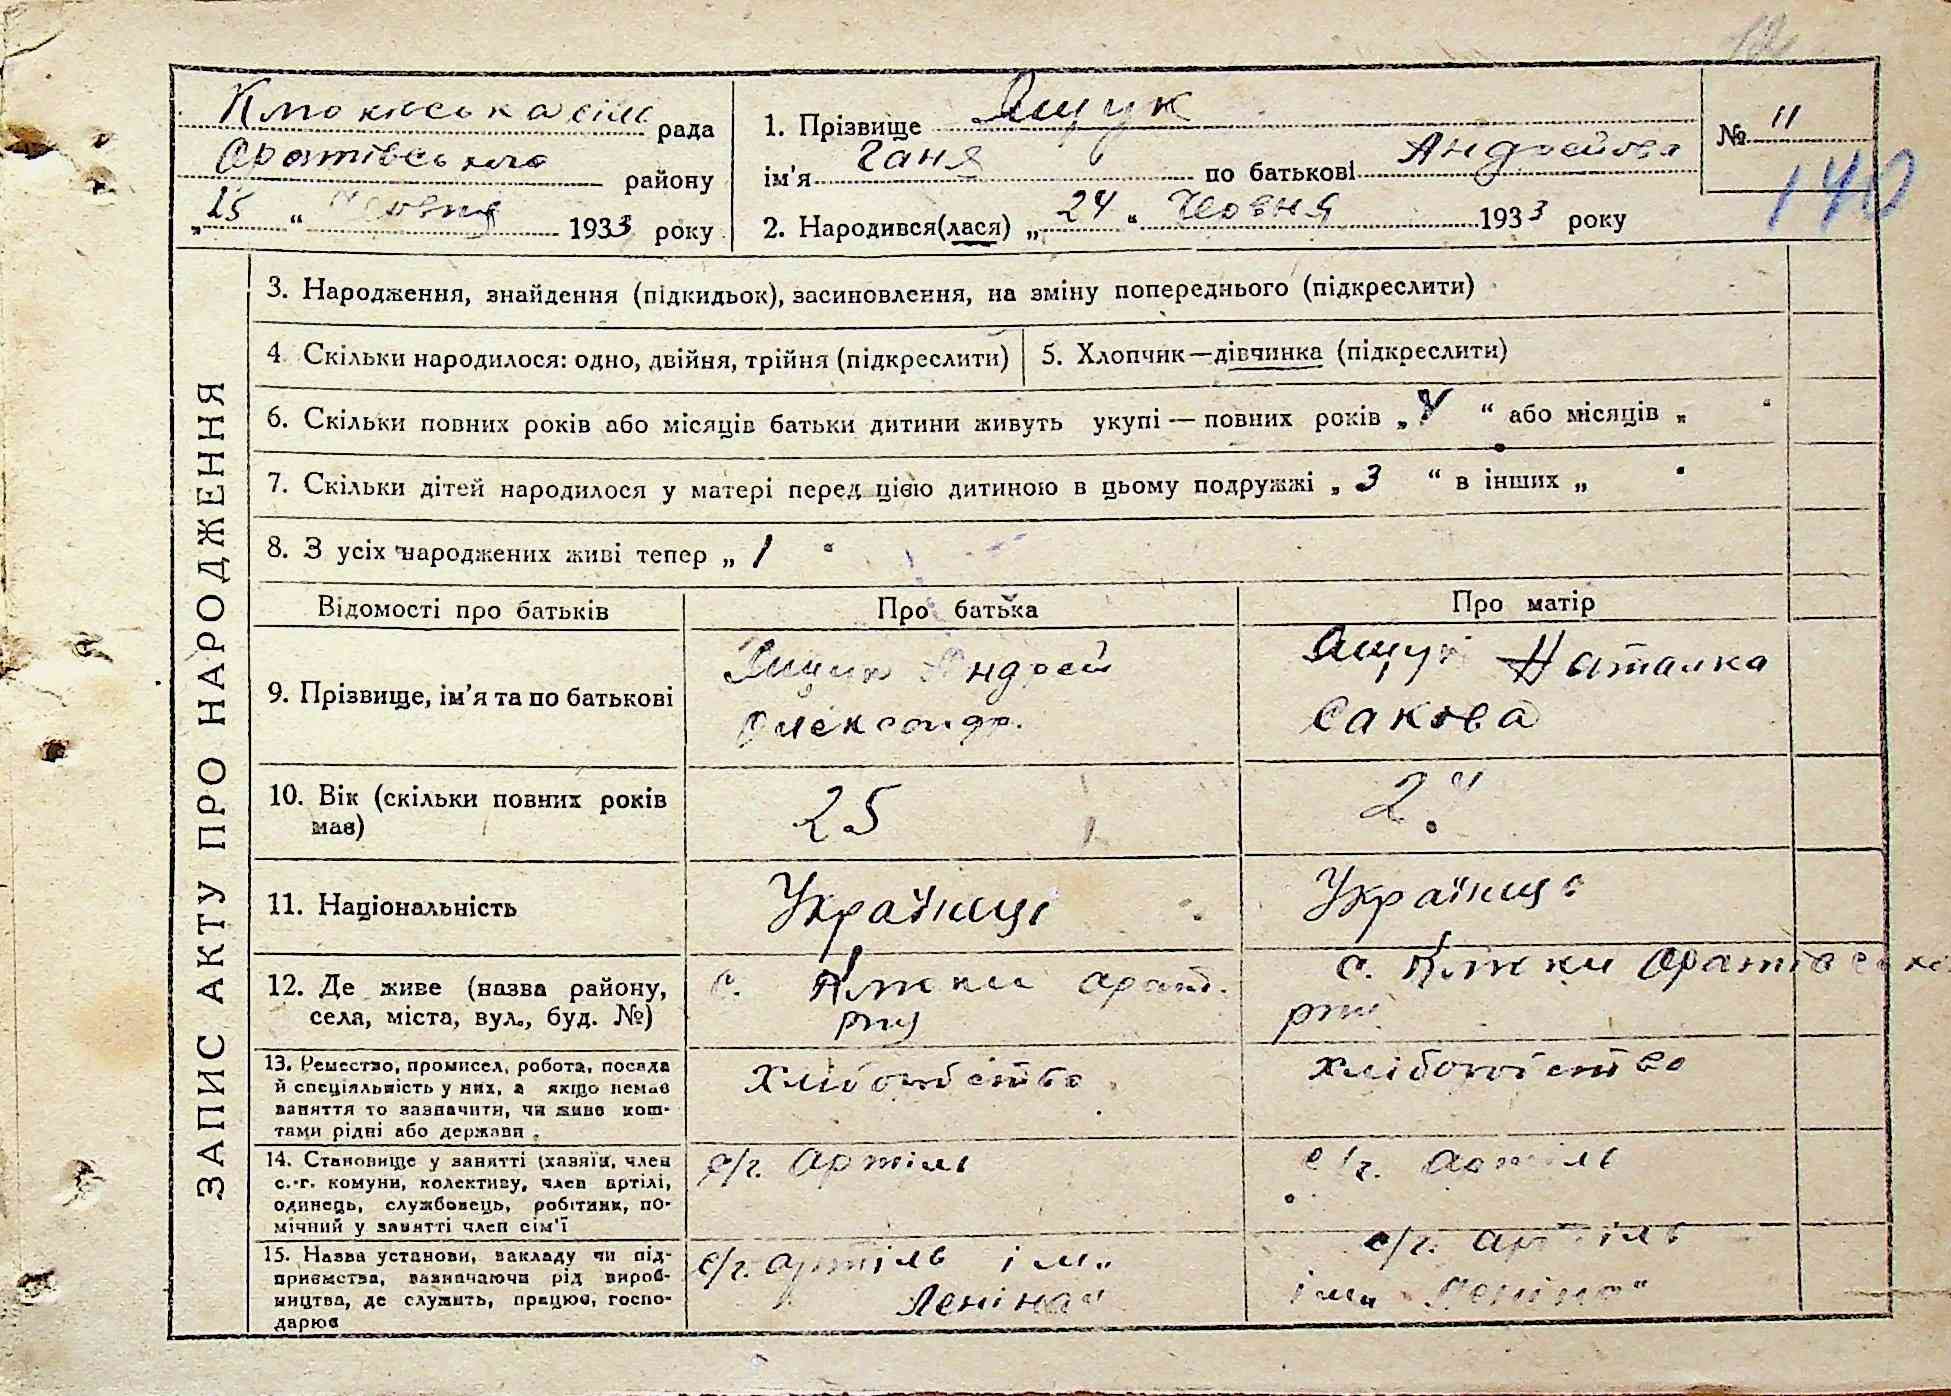 рада
Оратівського району
„25“ Червня 1933 року
1. Прізвище Ящук
ім'я Ганя по батькові Андрейова
2. Народився(лася) „24“ Червня 1933 року
№ 11
140
ЗАПИС АКТУ ПРО НАРОДЖЕННЯ
3. Народження, знайдення (підкидьок), засиновлення, на зміну попереднього (підкреслити)
4. Скільки народилося: одно, двійня, трійня (підкреслити)
5. Хлопчик—дівчинка (підкреслити)
6. Скільки повних років або місяців батьки дитини живуть укупі — повних років „ “ або місяців „
7. Скільки дітей народилося у матері перед цією дитиною в цьому подружжі „ 3 “ в інших „
8. З усіх народжених живі тепер „ 1 “
Відомості про батьків
Про батька
Про матір
9. Прізвище, ім'я та по батькові
Ящук Андрей
Олександр.
Ящук Наталка
Сакова
10. Вік (скільки повних років
має)
25
11. Національність
Українці
Українці
12. Де живе (назва району,
села, міста, вул., буд. №)
с. Орат.
рну
с. Оратівськ
13. Ремество, промисел, робота, посада
й спеціяльність у них, а якщо немає
заняття то зазначити, чи живе кош-
тами рідні або держави
Хліборобство
хліборобство
14. Становище у занятті (хазяїн, член
с.-г. комуни, колективу, член артілі,
одинець, службовець, робітник, по-
мічний у занятті член сім'ї
с/г. артіль
с/г. артіль
15. Назва установи, закладу чи під-
приємства, зазначаючи рід вироб-
ництва, де служить, працює, госпо-
дарює
с/г. артіль ім„
Леніна“
с/г. артіль
ім„ Леніна“